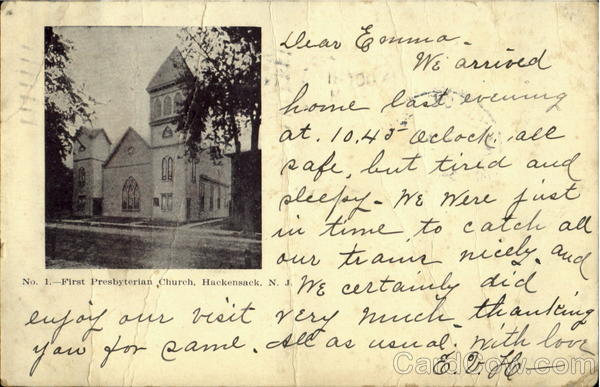 Dear Emma-
We arrived
home last evening
at. 10.45 oclock. all
safe, but tired and
sleepy- We were just
in time to catch all
our trains nicely. and
No. 1.—First Presbyterian Church, Hackensack, N. J.
We certainly did
enjoy our visit very much- thanking
you for same. All as usual. With love
E. V. H—
CardCow.com